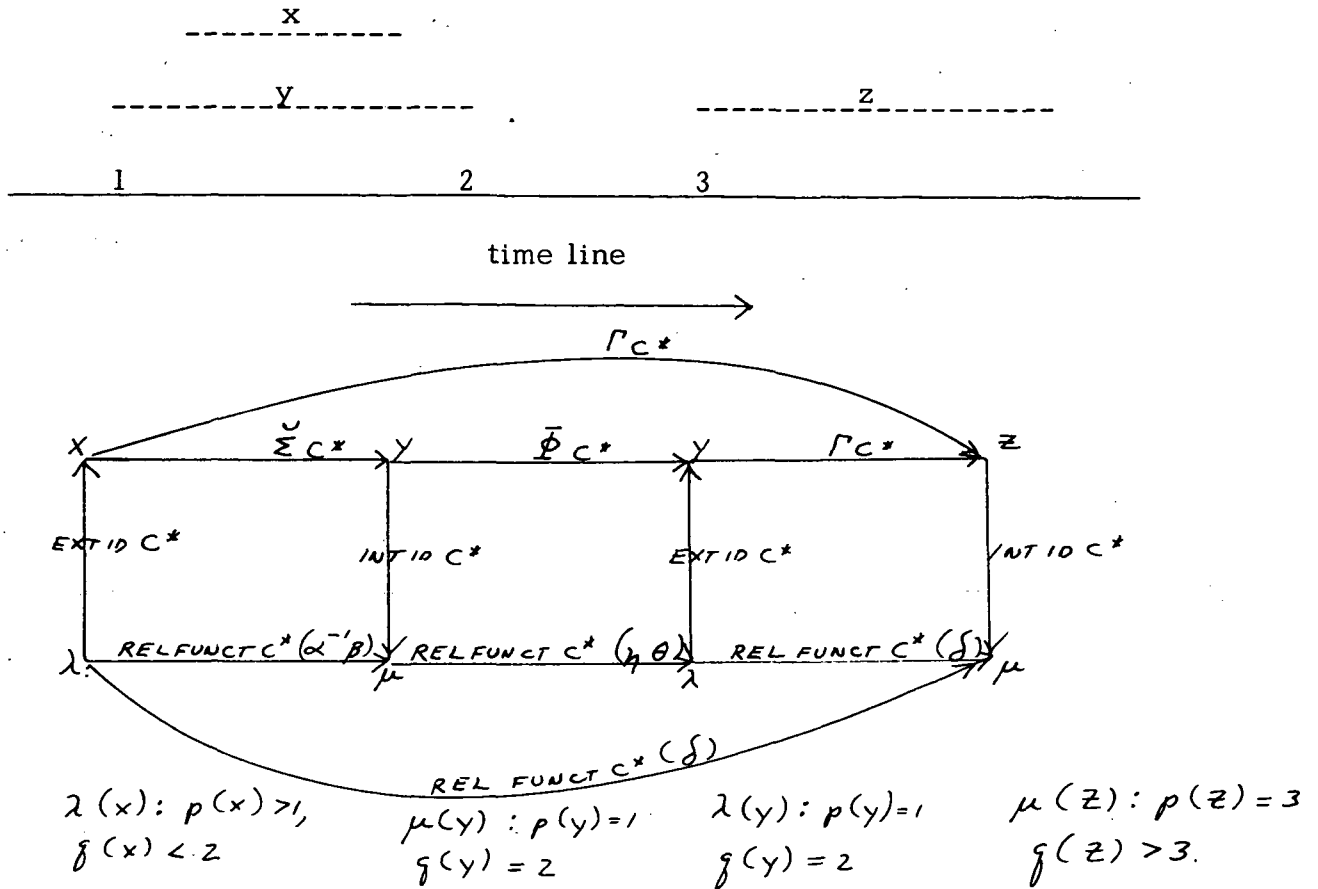 x
y z
1 2 3
time line
Γ C*
X Σ̆ C* Y Φ̄ C* Y Γ C* Z
EXT ID C* INT ID C* EXT ID C* INT ID C*
λ REL FUNCT C* (α⁻¹β) μ REL FUNCT C* (η θ) λ REL FUNCT C* (δ) μ
REL FUNCT C* (δ)
λ(x): p(x) >1, μ(y) : p(y)=1 λ(y): p(y)=1 μ(Z): p(Z)=3
q(x) < 2 q(y) = 2 q(y) = 2 q(Z) >3.